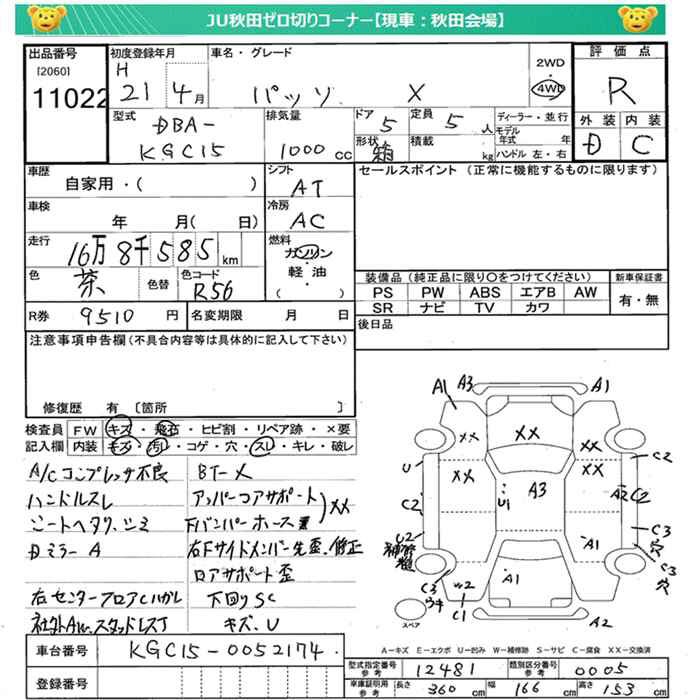 JU秋田ゼロ切りコーナー【現車：秋田会場】
出品番号
[2060]
11022
初度登録年月
H
21 4月
車名・グレード
パッソ X
2WD
・
4WD
評価点
R
外装 内装
D C
型式
DBA-
KGC15
排気量
1000 cc
ドア
5
形状
箱
定員
5 人
積載
kg
ディーラー・並行
モデル年式 年
ハンドル 左・右
車歴
自家用・( )
シフト
AT
セールスポイント (正常に機能するものに限ります)
車検
年 月( 日)
冷房
AC
走行
16万8千585 km
燃料
ガソリン
軽油
( )
色
茶
色替
色コード
R56
装備品 (純正品に限り○をつけてください)
新車保証書
PS PW ABS エアB AW
有・無
SR ナビ TV カワ
R券 9510 円
名変期限 月 日
後日品
注意事項申告欄(不具合内容等は具体的に記入して下さい)
修復歴 有〔箇所 〕
検査員 FW キズ・飛石・ヒビ割・リペア跡・×要
記入欄 内装 キズ・汚レ・コゲ・穴・スレ・キレ・破レ
A/Cコンプレッサ不良
BT-X
ハンドルスレ
アッパーコアサポート
XX
シートヘタリ、シミ
Fバンパーホース
Dミラー A
右Fサイドメンバー先歪、修正
ロアサポート歪
右センターフロアCハガレ
下回りSC
社外Aw.スタッドレスT
キズ、U
A1 A3 A1
XX XX XX
XX XX
U C2
U1 A3
C2 A2 C2
U2 C3
補修 穴
A1
C3 W2 A1 C3
穴
C1 A2
スペア
A－キズ E－エクボ U－凹み W－補修跡 S－サビ C－腐食 XX－交換済
車台番号
KGC15-0052174.
登録番号
型式指定番号
参考
12481
類別区分番号
参考
0005
車庫証明用
参考
長さ 360 cm 幅 166 cm 高さ 153 cm